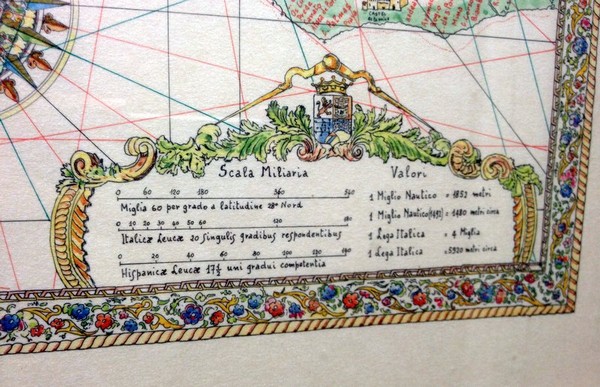 Scala Miliaria
0 60 120 180 360 540
Miglia 60 per grado a latitudine 28° Nord
0 10 20 30 40 50 60 120 180
Italicæ Leucæ 20 singulis gradibus respondentibus
0 20 40 60 80 100 140
Hispanicæ Leucæ 17½ uni gradui competentia
Valori
1 Miglio Nautico = 1852 metri
1 Miglio Nautico (1492) = 1480 metri circa
1 Lega Italica = 4 Miglia
1 Lega Italica = 5920 metri circa